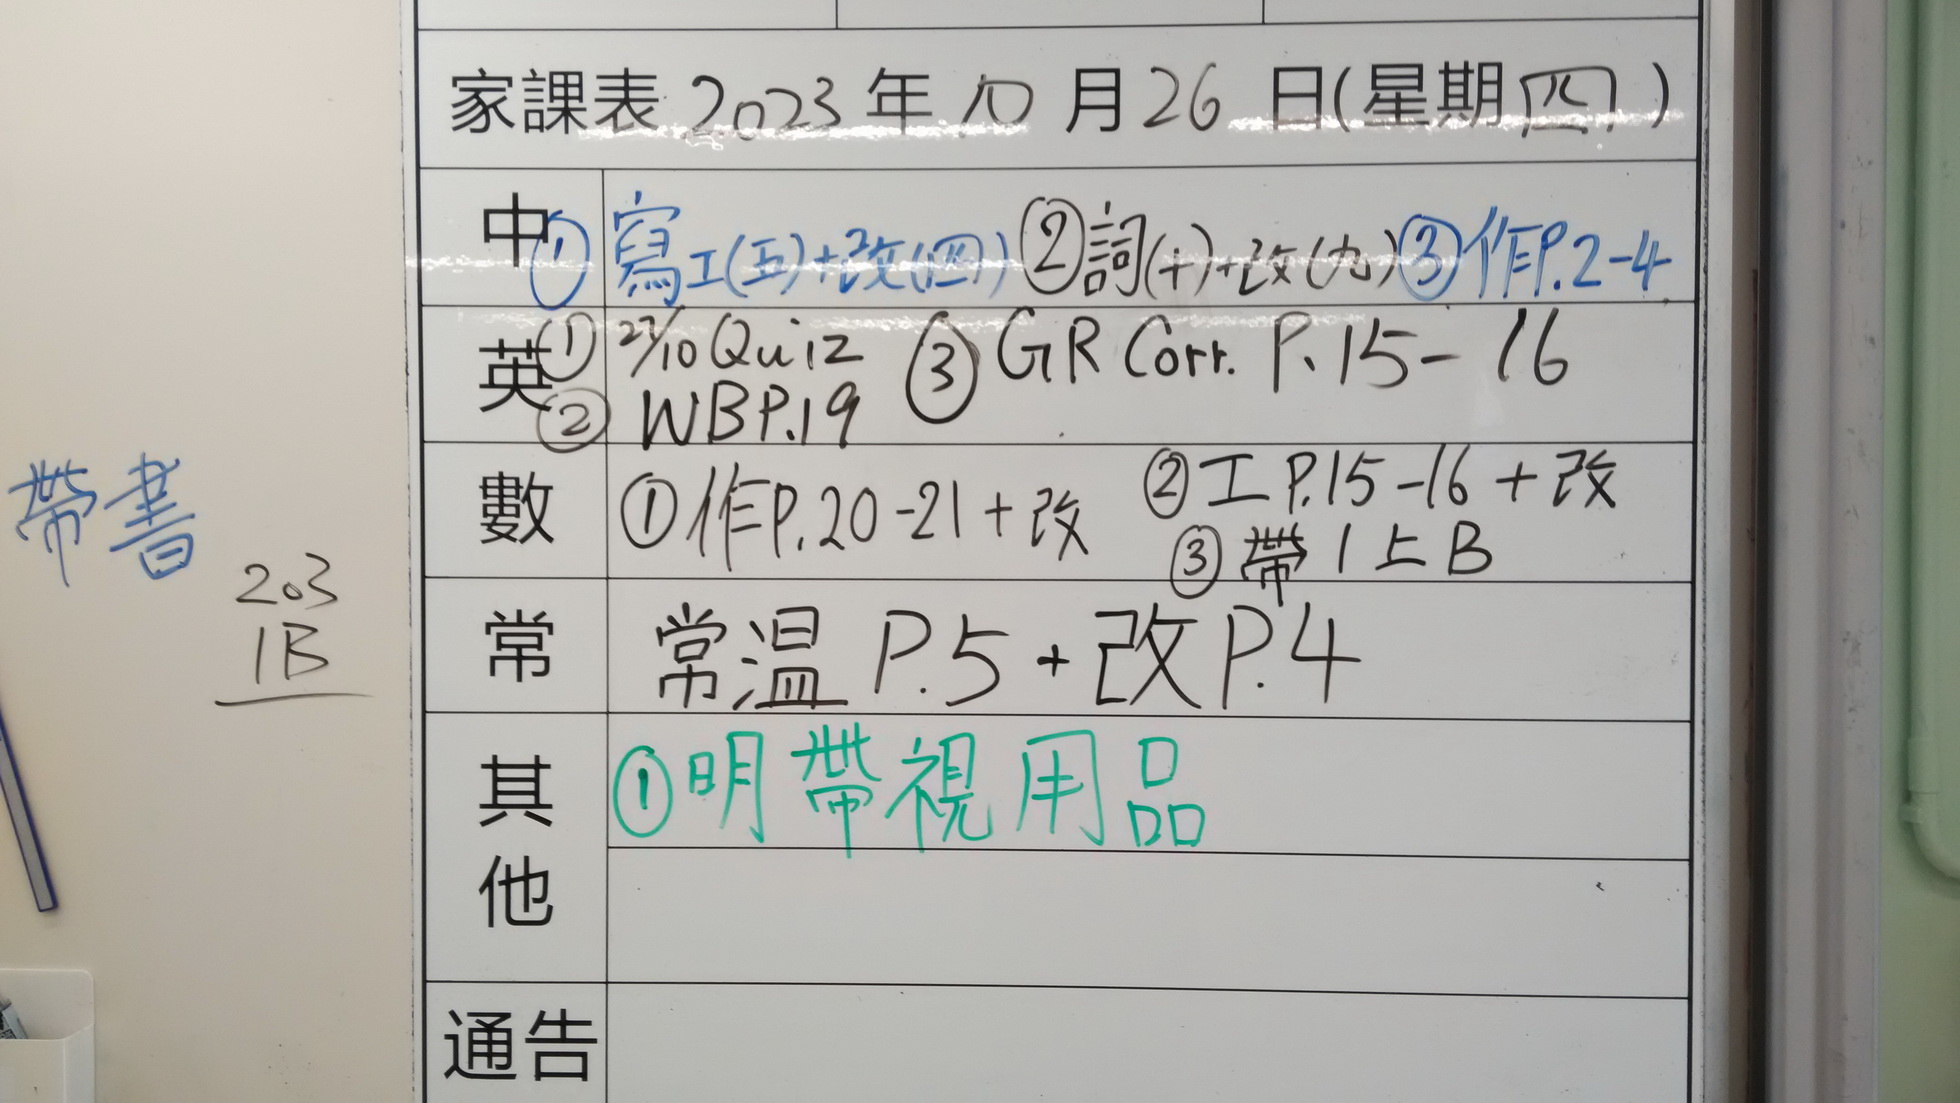 家課表 2023 年 10 月 26 日(星期四)
中 ① 寫工(五)+改(四) ② 詞(十)+改(九) ③ 作P.2-4
英 ① 27/10 Quiz ③ GR Corr. P.15-16
② WB P.19
數 ① 作P.20-21+改 ② 工P.15-16+改
③ 帶1上B
常 常温 P.5+改P.4
其他 ① 明帶視用品
通告
帶書
203
1B